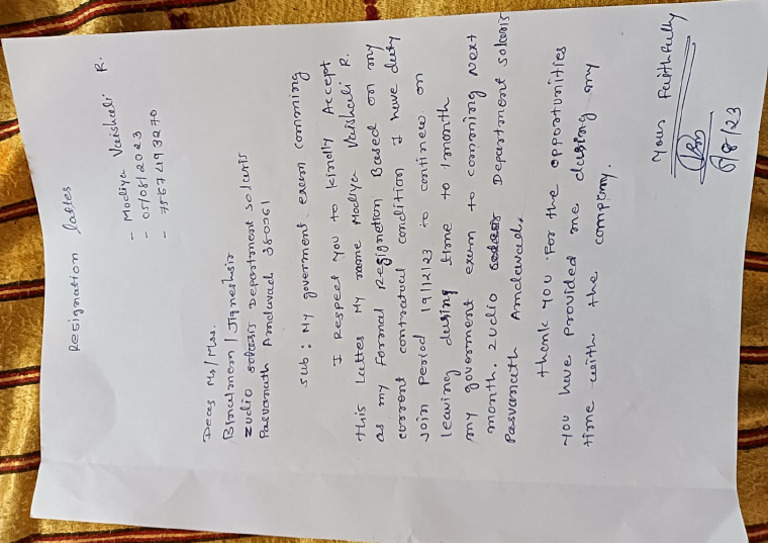 Resignation latter
- Modiya Vaishali R.
- 05/08/2023
- 7567493270
Dear Mr/Mrs.
Binalmem / Jigneshsir
zudio Department
Pasvanath Amdavad 380061
sub: My goverment exam comming
I Respect You to kindly Accept
this Latter My name Modiya Vaishali R.
as my Formal Resignetion Based on my
current contratoul condition I have duty
Join Period 19/12/23 to continew on
leaving during time to 1 month
my goverment exam to comming Next
month. zudio Department
Pasvanath Amdavad.
thank You For the opportunities
You have Provided me during my
time with the company.
Yous Faithfully
5/8/23